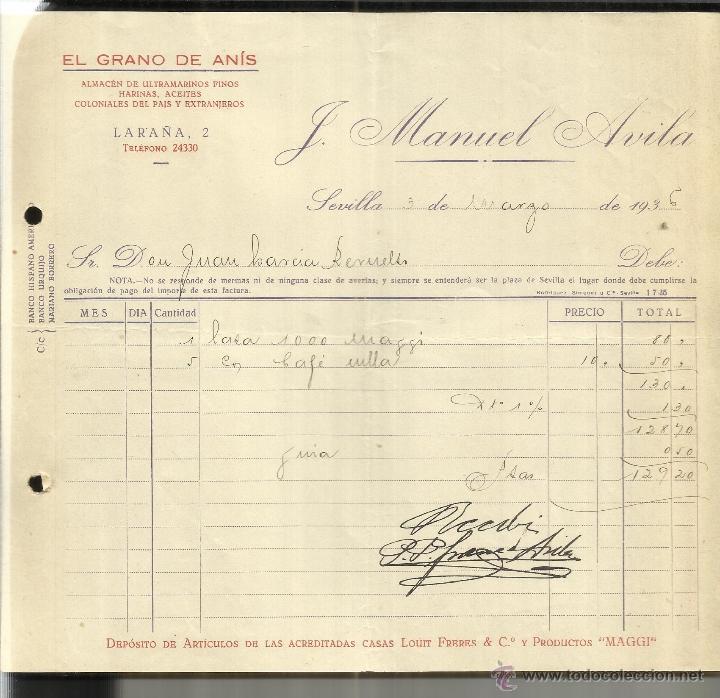 EL GRANO DE ANÍS
ALMACÉN DE ULTRAMARINOS FINOS
HARINAS, ACEITES
COLONIALES DEL PAIS Y EXTRANJEROS
LARAÑA, 2
TELÉFONO 24330
J. Manuel Avila
Sevilla 3 de Marzo de 1936
Sr. Don Juan Garcia Debe:
NOTA.—No se responde de mermas ni de ninguna clase de averías; y siempre se entenderá ser la plaza de Sevilla el lugar donde debe cumplirse la
obligación de pago del importe de esta factura.
Rodríguez Giménez y Cª-Sevilla 1-7-35
C/c
BANCO HISPANO AMERICANO
BANCO URQUIJO
MARIANO BORRERO
MES DIA Cantidad PRECIO TOTAL
1 Caja 1000 Maggi 80,
5 Café 10, 50,
130,
1% 1 30
128 70
0 50
Ptas 129 20
Recibi
P. P. Avila
DEPÓSITO DE ARTÍCULOS DE LAS ACREDITADAS CASAS LOUIT FRERES & C.º Y PRODUCTOS "MAGGI"
todocoleccion.net